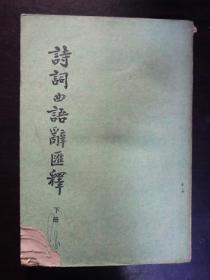 詩詞曲語辭匯釋
下册